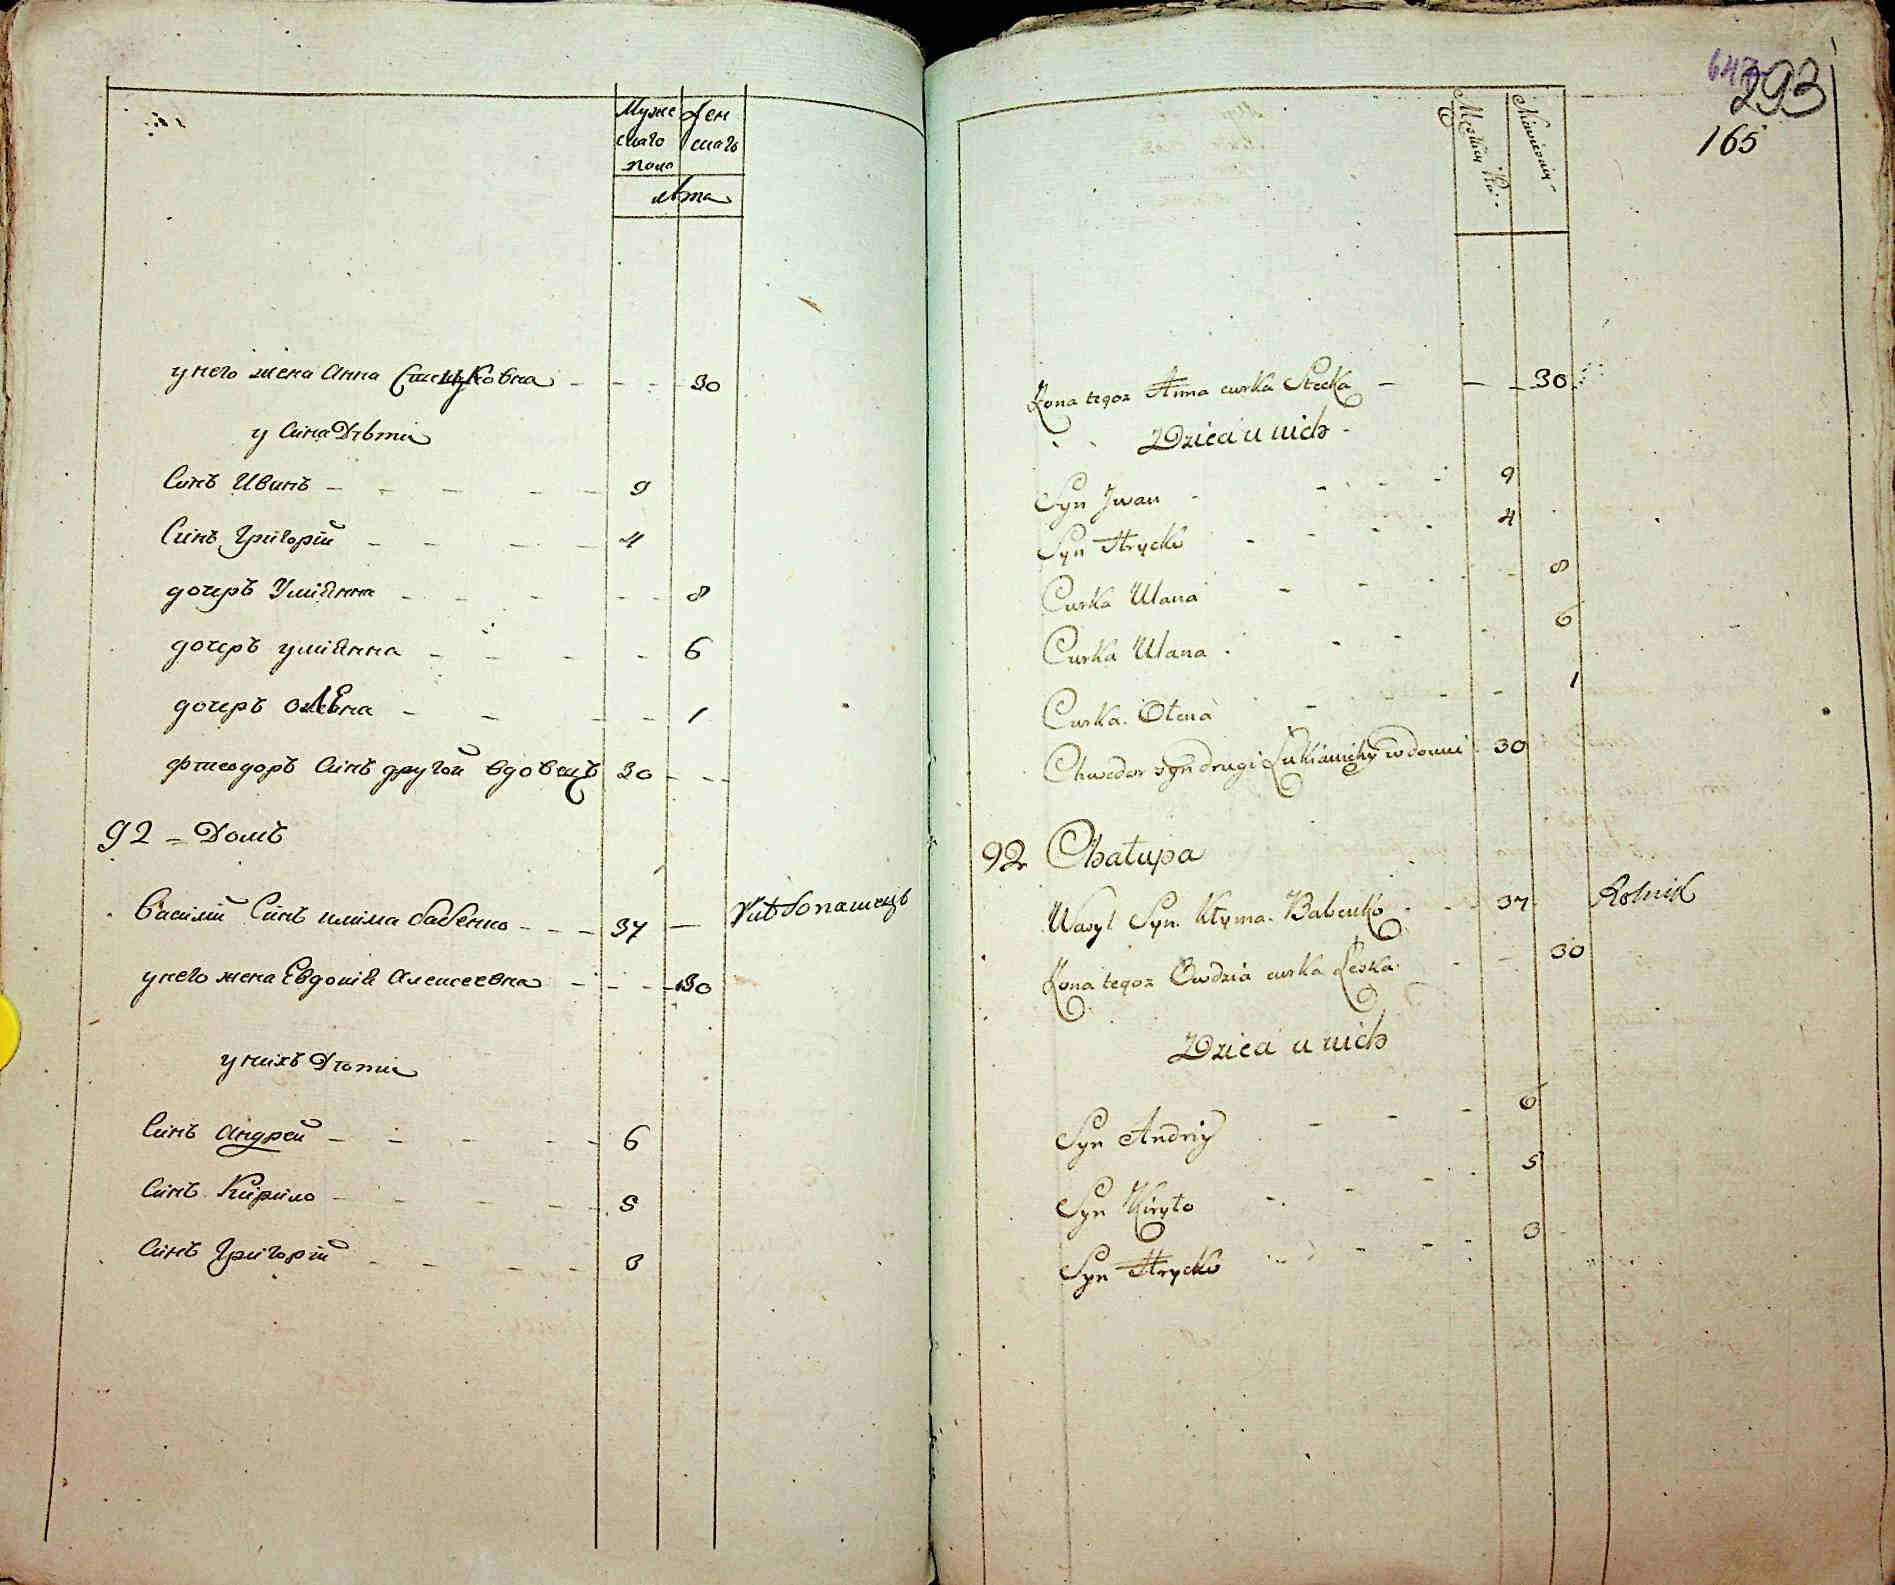 Муже
скаго
пола
Жен
скаго
лѣта
у него жена Анна Стецковна 30
у Сина Дѣти
Синъ Иванъ 9
Синъ Григорій 4
дочеръ Улиянна 8
дочеръ улиянна 6
дочеръ Олена 1
Фтеодоръ Синъ другой вдовецъ 30
92 = Домъ
Василій Синъ клима бабенко 37 Хлѣбопашецъ
у него жена Евдокия Алексеевна 30
у нихъ Дѣти
Синъ Андрей 6
Синъ Кирило 5
Синъ Григорій 3
293
165
Żona tegoz Anna curka Stecka 30
Dzieci u nich
Syn Jwan 9
Syn Hrycko 4
Curka Ulana 8
Curka Ulana 6
Curka Olena 1
Chwedor syn drugi wdowi 30
92 Chałupa
Wasyl Syn Kłyma Babenko 37 Rolnik
Żona tegoz Owdzia curka Leska 30
Dzieci u nich
Syn Andriy 6
Syn Kiryło 5
Syn Hrycko 3